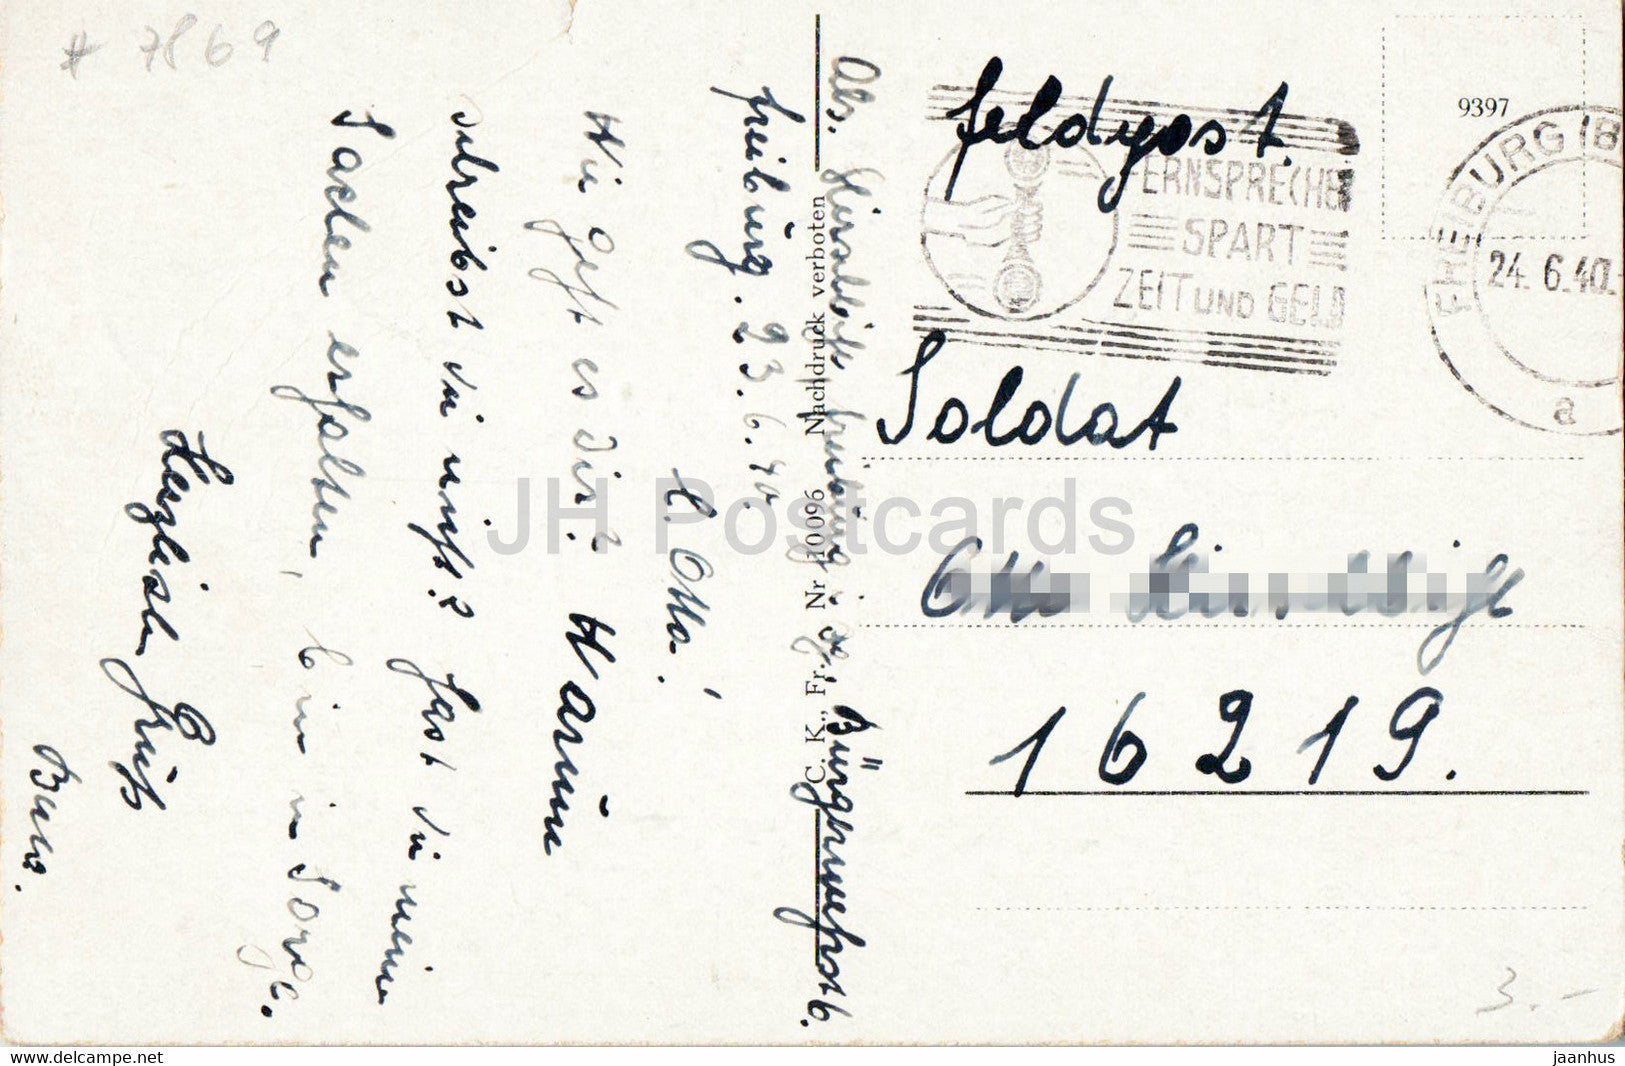 # 7869
Abs. Freiburg i. Bg. Bürgerwehrstb.
Freiburg. 23.6.40.
L. Otto!
Wie geht es dir? Warum
schreibst du nicht? Hast du meine
Sachen erhalten, bin in Sorge.
Herzlichen Gruß
C. K., Fr., Nr 10096 Nachdruck verboten
Feldpost.
FERNSPRECHEN
SPART
ZEIT UND GELD
9397
FREIBURG (B
24. 6.40.
a
Soldat
Otto
16219.
3.-
JH Postcards
www.delcampe.net
jaanhus